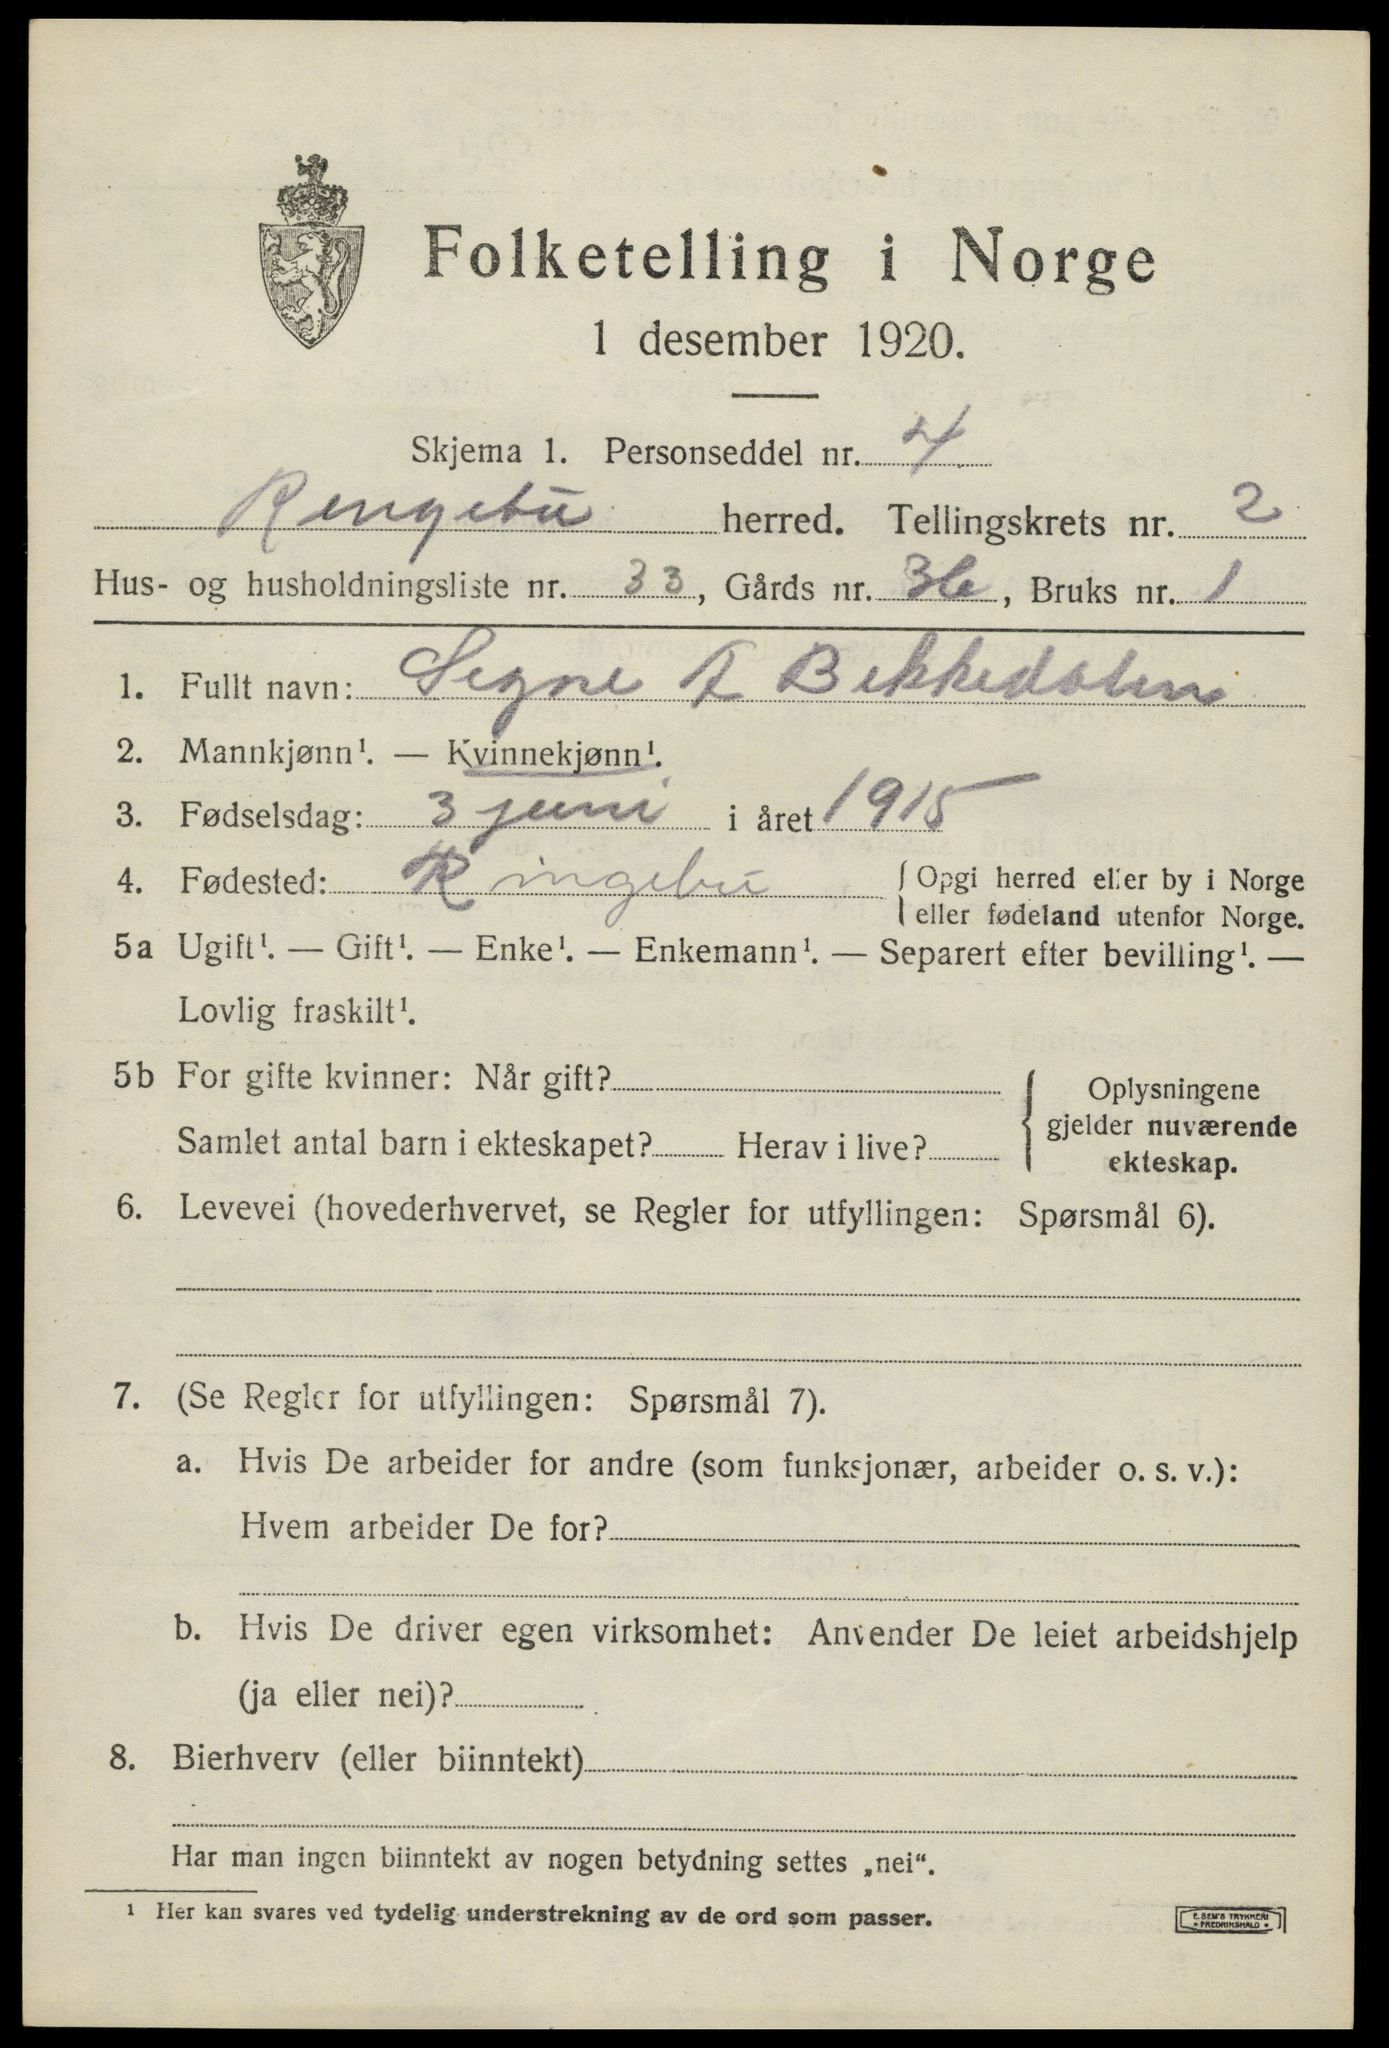 Folketelling i Norge
1 desember 1920.
Skjema 1. Personseddel nr. 4
Ringebu herred. Tellingskrets nr. 2
Hus- og husholdningsliste nr. 33, Gårds nr. 36, Bruks nr. 1
1. Fullt navn: Signe T Bekkedalen
2. Mannkjønn¹. — Kvinnekjønn¹.
3. Fødselsdag: 3 juni i året 1915
4. Fødested: Ringebu { Opgi herred eller by i Norge
eller fødeland utenfor Norge.
5a Ugift¹. — Gift¹. — Enke¹. — Enkemann¹. — Separert efter bevilling¹. —
Lovlig fraskilt¹.
5b For gifte kvinner: Når gift?
Samlet antal barn i ekteskapet? Herav i live?
{ Oplysningene
gjelder nuværende
ekteskap.
6. Levevei (hovederhvervet, se Regler for utfyllingen: Spørsmål 6).
7. (Se Regler for utfyllingen: Spørsmål 7).
a. Hvis De arbeider for andre (som funksjonær, arbeider o. s. v.):
Hvem arbeider De for?
b. Hvis De driver egen virksomhet: Anvender De leiet arbeidshjelp
(ja eller nei)?
8. Bierhverv (eller biinntekt)
Har man ingen biinntekt av nogen betydning settes „nei“.
¹ Her kan svares ved tydelig understrekning av de ord som passer.
E. SEM'S TRYKKERI
FREDRIKSHALD